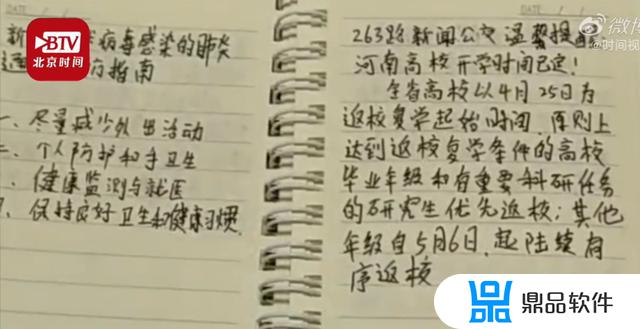 BTV
北京时间
新
病毒感染的肺炎
防指南
一、尽量减少外出活动
二、个人防护和手卫生
健康监测与就医
保持良好卫生和健康习惯.
DATE
263路新闻公交 温馨提
河南高校开学时间已定!
全省高校以4月25日为
返校复学起始时间,原则上
达到返校复学条件的高校
毕业年级和有重要科研任务
的研究生优先返校;其他
年级自5月6日.起陆续有
序返校
微博
@时间视
鼎品软件